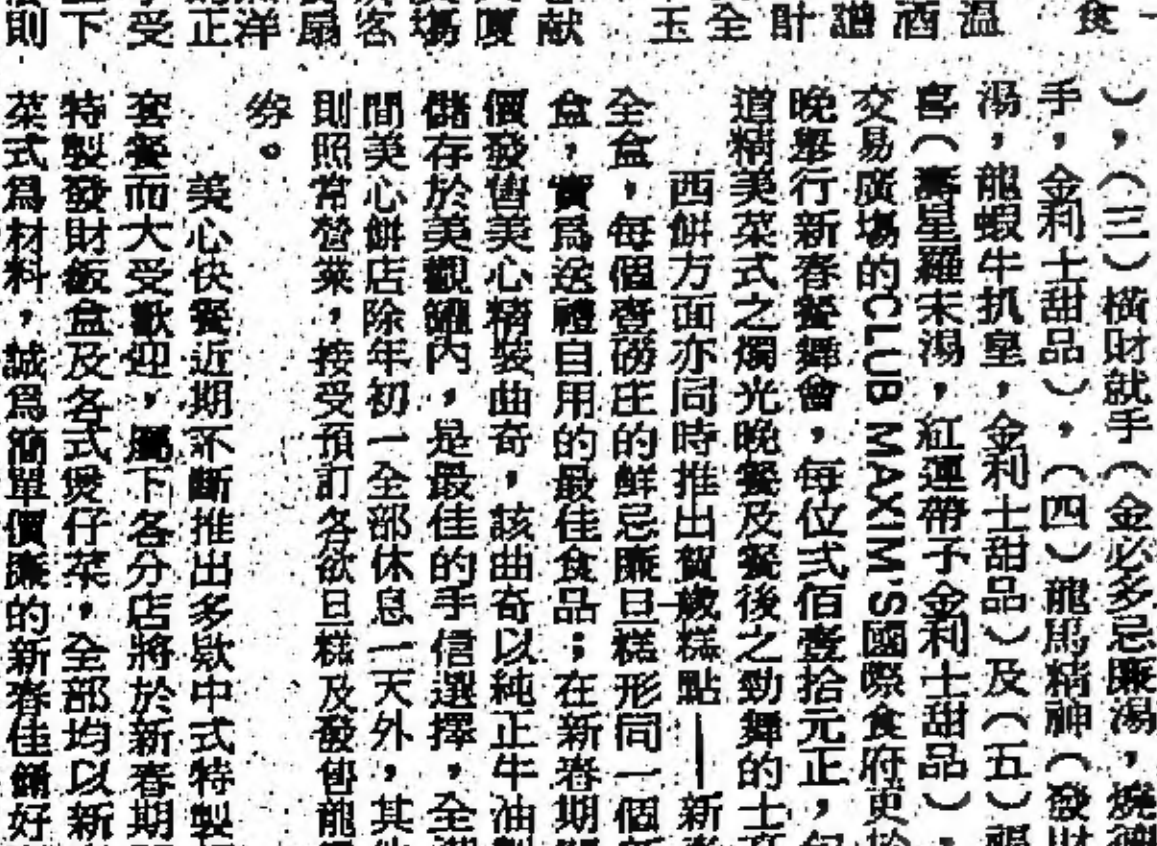 ），（三）橫財就手（金必多忌廉湯，燒
手，金利士甜品），（四）龍馬精神（發財
湯，龍蝦牛扒皇，金利士甜品）及（五）福
宮（壽星羅宋湯，紅運帶子金利士甜品），
交易廣場的CLUB MAXIM'S國際食府更於
晚舉行新春餐舞會，每位式佰壹拾元正，包
道精美菜式之燭光晚餐及餐後之勁舞的士高
西餅方面亦同時推出賀歲糕點——新春
全盒，每個壹磅庄的鮮忌廉旦糕形同一個
盒，實爲送禮自用的最佳食品；在新春期
價發售美心精裝曲奇，該曲奇以純正牛油
儲存於美觀罐內，是最佳的手信選擇，全
間美心餅店除年初一全部休息一天外，其他
則照常營業，接受預訂各欵旦糕及發售龍
券。
美心快餐近期不斷推出多欵中式特製
套餐而大受歡迎，屬下各分店將於新春期
特製發財飯盒及各式煲仔菜，全部均以新
菜式爲材料，誠爲簡單價廉的新春佳餚好